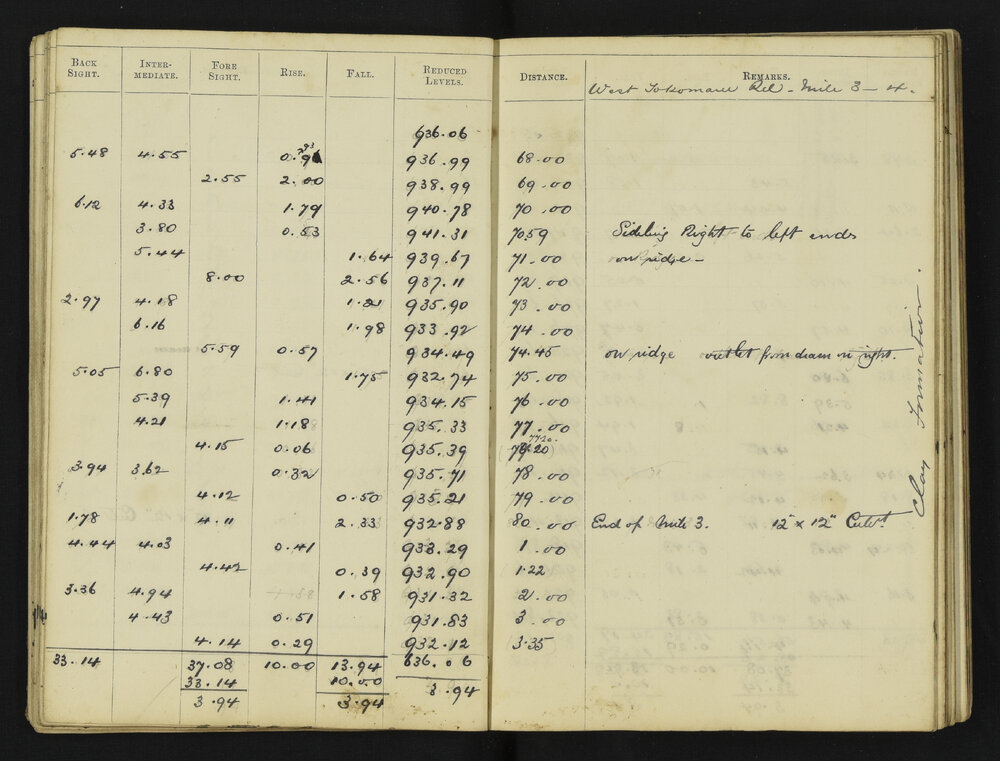 BACK SIGHT. INTER-MEDIATE. FORE SIGHT. RISE. FALL. REDUCED LEVELS. DISTANCE. REMARKS.
West Tokomaru Rd - Mile 3 - 4.
936.06
5.48 4.55 0.93 936.99 68.00
2.55 2.00 938.99 69.00
6.12 4.33 1.79 940.78 70.00
3.80 0.53 941.31 70.59 Sideling Right to left ends
5.44 1.64 939.67 71.00 on ridge -
8.00 2.56 937.11 72.00
2.97 4.18 1.21 935.90 73.00
6.16 1.98 933.92 74.00
5.59 0.57 934.49 74.45 on ridge outlet from drain on right.
5.05 6.80 1.75 932.74 75.00
5.39 1.41 934.15 76.00
4.21 1.18 935.33 77.00
77.20
4.15 0.06 935.39 (76.20)
3.94 3.62 0.32 935.71 78.00
4.12 0.50 935.21 79.00
1.78 4.11 2.33 932.88 80.00 End of Mile 3. 12" x 12" Culvt.
4.44 4.03 0.41 933.29 1.00
4.42 0.39 932.90 1.22
3.36 4.94 1.58 931.32 2.00
4.43 0.51 931.83 3.00
4.14 0.29 932.12 3.35
33.14 37.08 10.00 13.94 636.06
33.14 10.00 3.94
3.94 3.94
Clay Formation.